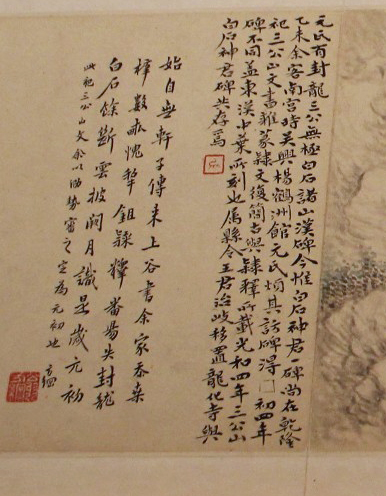 元氏有封龍三公無極白石諸山漢碑今惟白石神君一碑尚在乾隆
乙未余客南宮時吳興楊鶴洲館元氏煩其訪碑得□初四年
祀三公山文書雜篆隸文復簡古與隸釋所載光和四年三公山
碑不同蓋東漢中葉所刻也屬縣令王君治岐移置龍化寺與
白石神君碑共存焉
始自軒子傳來上谷書余家忝桒
梓數畝愧犂鉏隸釋番昜失封龍
白石餘斷雲披澗月識是歲元初
此祀三公山文余以泐勢審之定為元初也